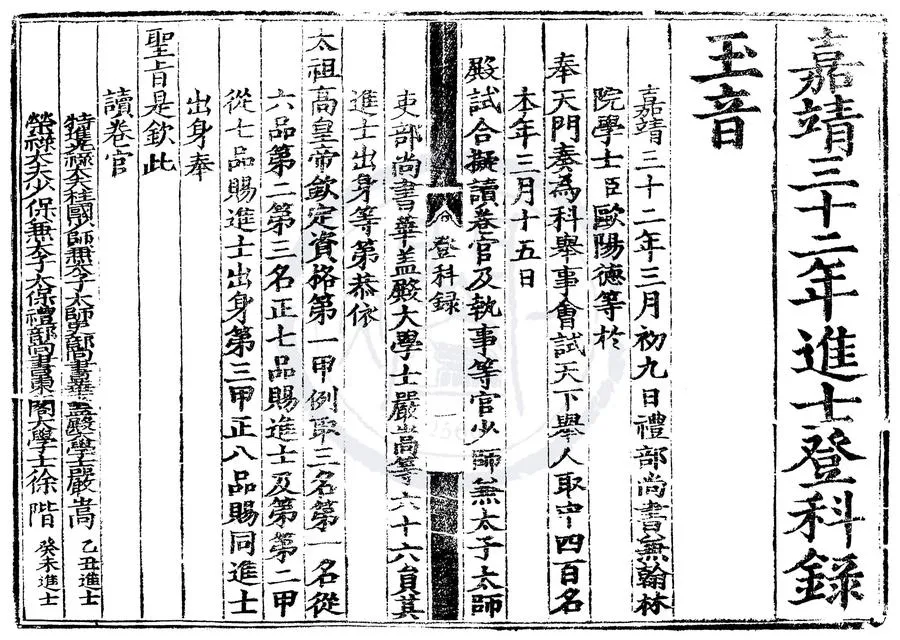 嘉靖三十二年進士登科錄
玉音
嘉靖三十二年三月初九日禮部尚書兼翰林
院學士臣歐陽德等於
奉天門奏為科舉事會試天下舉人取中四百名
本年三月十五日
殿試合擬讀卷官及執事等官少師兼太子太師
登科錄
一
吏部尚書華盖殿大學士嚴嵩等六十六員其
進士出身等第恭依
太祖高皇帝欽定資格第一甲例取三名第一名從
六品第二第三名正七品賜進士及第第二甲
從七品賜進士出身第三甲正八品賜同進士
出身奉
聖旨是欽此
讀卷官
特進光祿大夫柱國少師兼太子太師吏部尚書華盖殿大學士嚴嵩 乙丑進士
榮祿大夫少保兼太子太保禮部尚書東閣大學士徐階 癸未進士